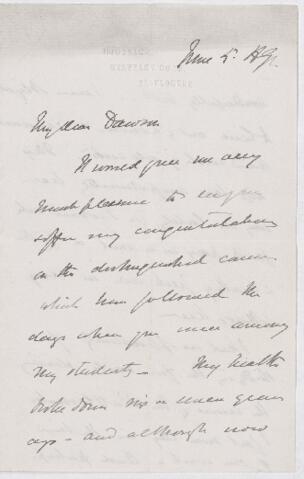 June 5. 1891.
My dear Dawson
It would give me very
much pleasure to
offer my congratulations
on the distinguished career
which has followed the
days when you were among
my students — My health
broke down six or seven years
ago — and although now